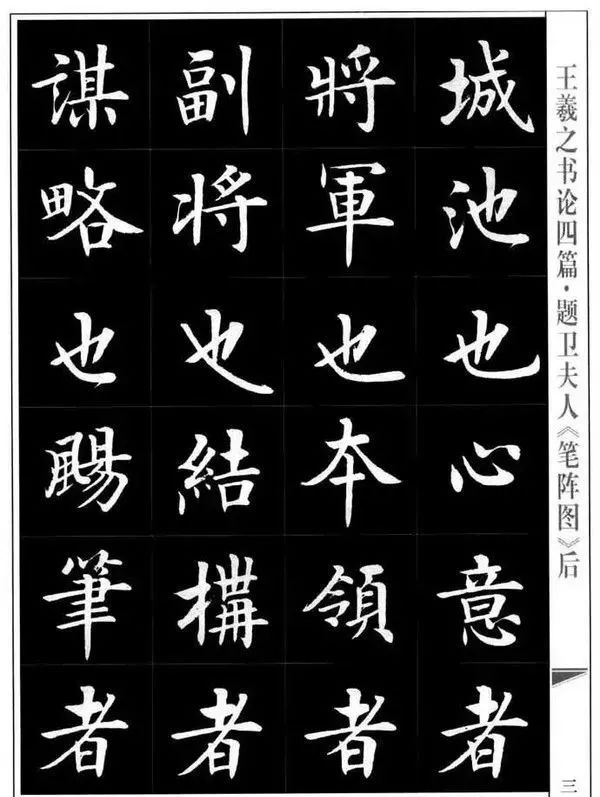 王羲之书论四篇·题卫夫人《笔阵图》后
三
城池也心意者
將軍也本領者
副将也結構者
謀略也颺筆者